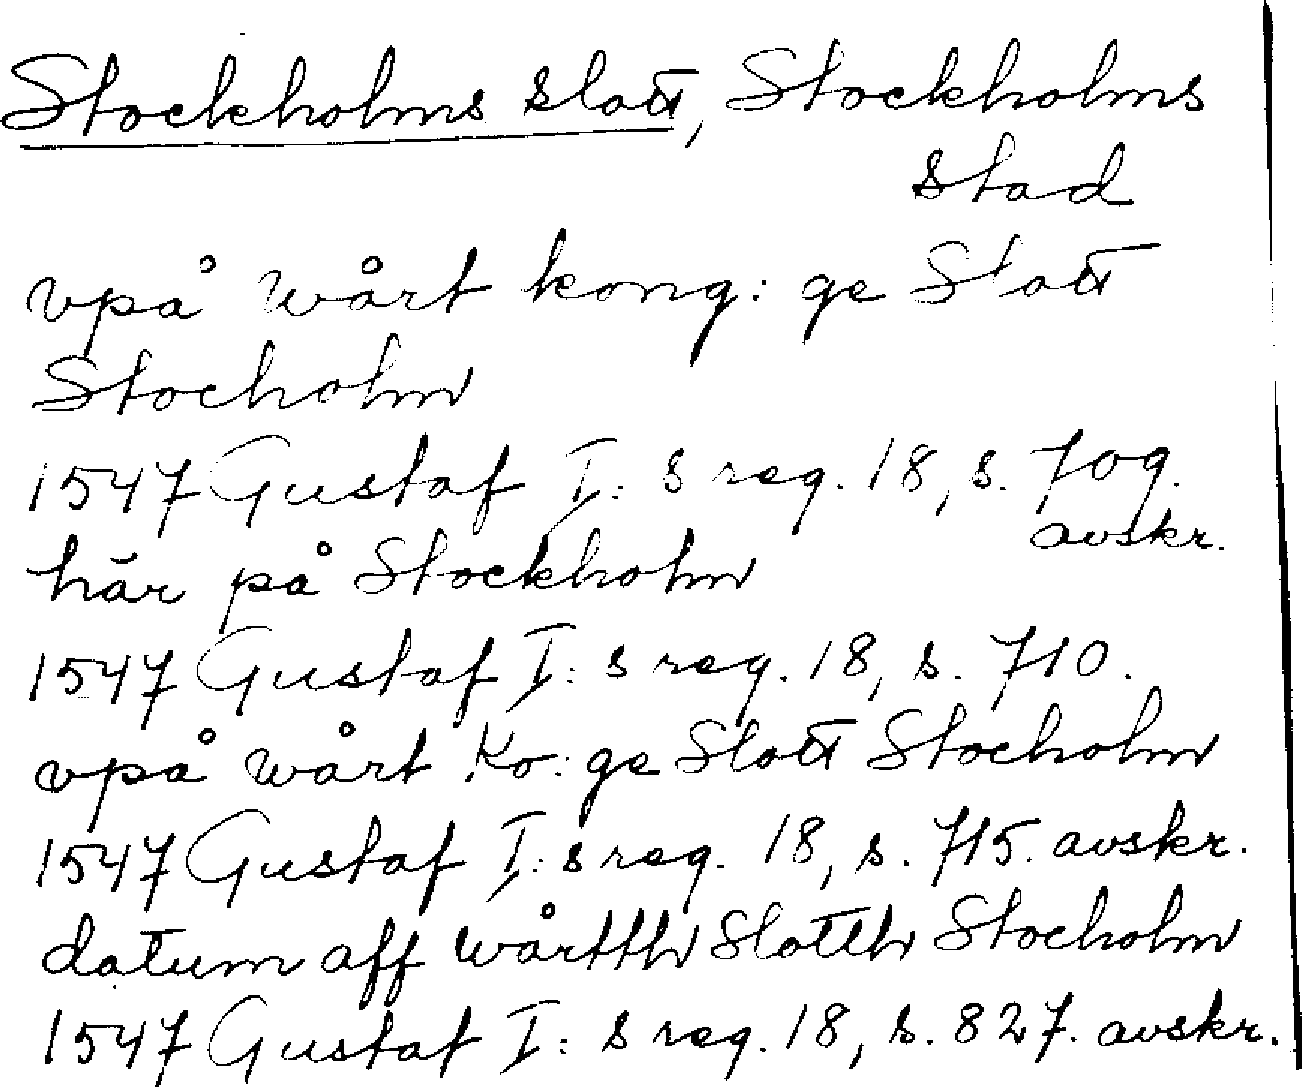 Stockholms slott, Stockholms
stad
vpå wårt kong: ge Slott
Stocholm
1547 Gustaf I: s reg. 18, s. 709.
avskr.
här på Stockholm
1547 Gustaf I: s reg. 18, s. 710.
vpå wårt Ko: ge Slott Stocholm
1547 Gustaf I: s reg. 18, s. 715. avskr.
datum aff wårtth Slotth Stocholm
1547 Gustaf I: s reg. 18, s. 827. avskr.